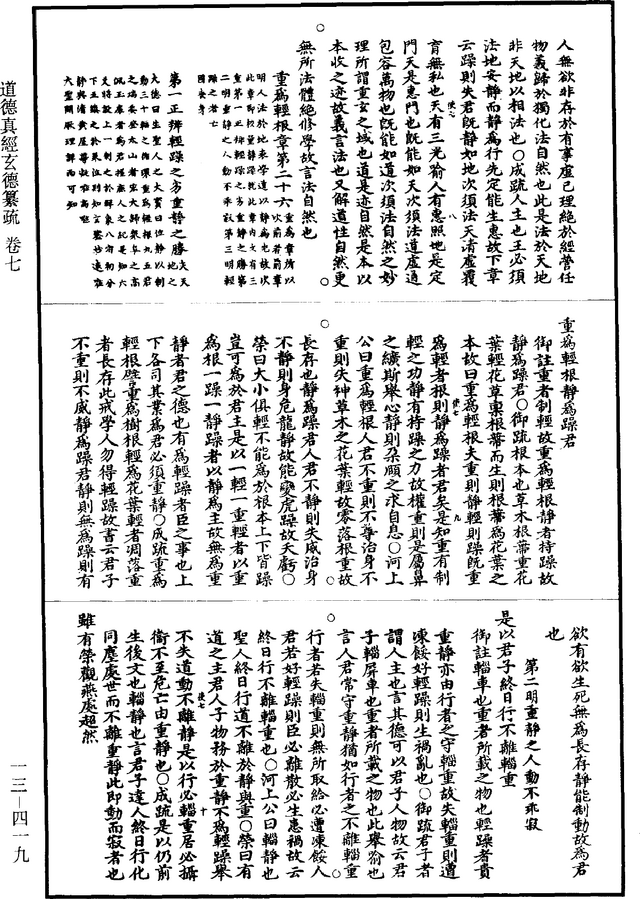 人無欲非存於有事虛己理絶於經營任
物義歸於獨化法自然也此是法於天地
非天地以相法也〇成疏人主也王必須
法地安靜而靜爲行先定能生惠故下章
云躁則失君既靜如地次須法天清虛覆
育無私也天有三光喻人有惠照地是定
門天是惠門也既能如天次須法道虛通
包容萬物也既能如道次須法自然之妙
理所謂重玄之域也道是迹自然是本以
本收之迹故義言法也又解道性自然更
無所法體絶修學故言法自然也
重爲輕根章第二十六
第一正辨輕躁之劣重靜之勝
重爲輕根靜爲躁君
御註重者制輕故重爲輕根靜者持躁故
靜爲躁君〇御疏根本也草木根蔕重花
葉輕花草稟根蔕而生則根蔕爲花葉之
本故曰重爲輕根夫重則靜輕則躁既重
爲輕者根則靜爲躁者君矣是知重有制
輕之功靜有持躁之力故權重則是屬鼻
之纊斯舉心靜則朶頤之求自息〇河上
公曰重爲輕根人君不重則不尊治身不
重則失神草木之花葉輕故零落根重故
長存也靜爲躁君人君不靜則失威治身
不靜則身危龍靜故能變虎躁故夭虧〇
榮曰大小俱輕不能爲於根本上下皆躁
豈可爲於君主是以一輕一重輕者以重
爲根一躁一靜躁者以靜爲主故無爲重
靜者君之德也有爲輕躁者臣之事也上
下各司其業爲君必須重靜〇成疏重爲
輕根譬重爲樹根輕爲花葉輕者凋落重
者長存此戒學人勿得輕躁故書云君子
不重則不威靜爲躁君靜則無爲躁則有
欲有欲生死無爲長存靜能制動故爲君
也
第二明重靜之人動不乖寂
是以君子終日行不離輜重
御註輜車也重者所載之物也輕躁者貴
重靜亦由行者之守輜重故失輜重則遭
凍餒好輕躁則生禍亂也〇御疏君子者
謂人主也言其德可以君子人物故云君
子輜屏車也重者所載之物也此舉喻也
言人君常守重靜猶如行者之不離輜重
行者若失輜重則無所取給必遭凍餒人
君若好輕躁則臣必離散必生患禍故云
終日行不離輜重也〇河上公曰輜靜也
聖人終日行道不離於靜與重〇榮曰有
道之主君人子物務於重靜不爲輕躁舉
不失道動不離靜是以行必輜重居必攝
衞不至危亡由重靜也〇成疏是以仍前
生後文也輜靜也言君子達人終日行化
同塵處世而不離重靜此即動而寂者也
雖有榮觀燕處超然
道德真經玄德纂疏 卷七
一三—四一九